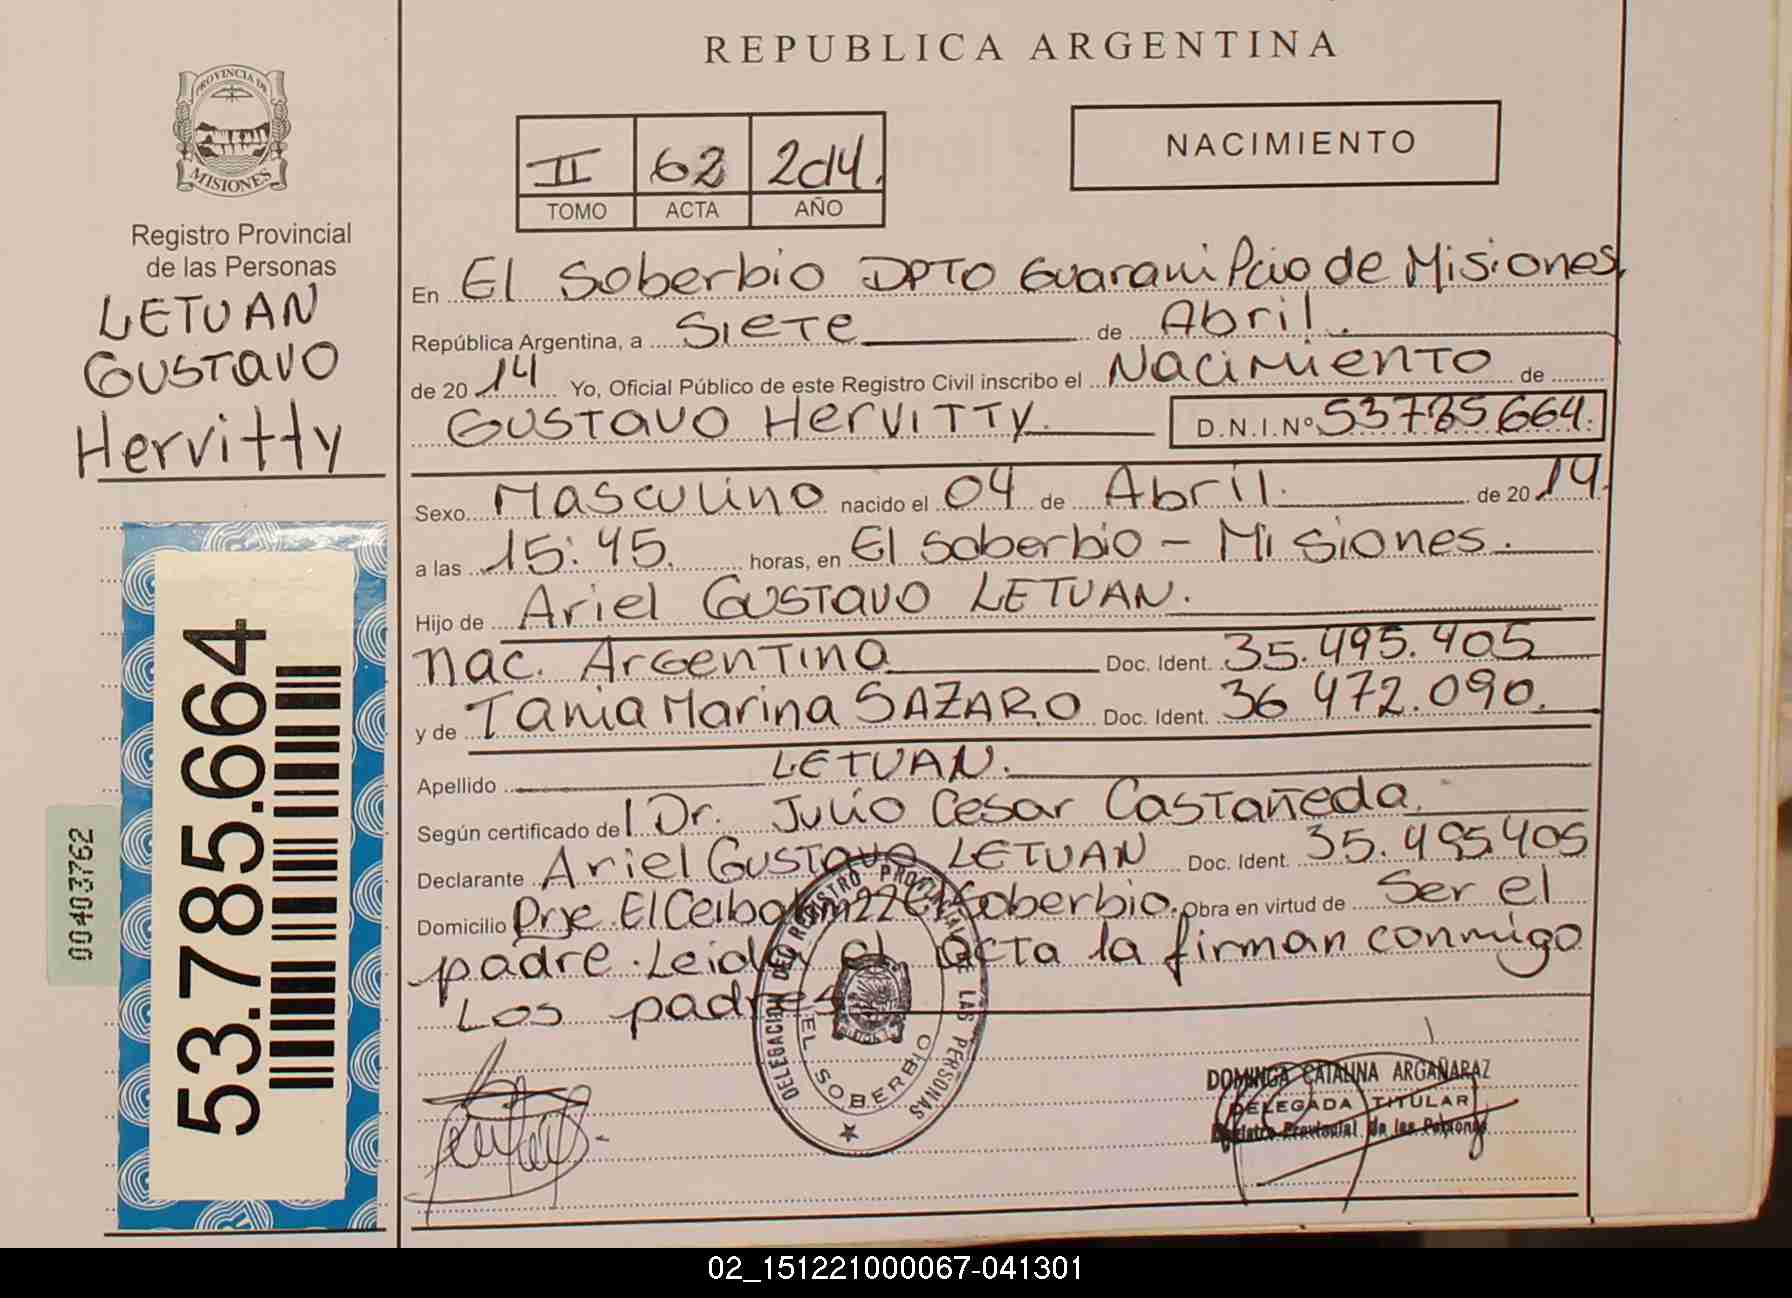 REPUBLICA ARGENTINA
PROVINCIA DE
MISIONES
Registro Provincial
de las Personas
LETUAN
GUSTAVO
Hervitty
53.785.664
00403762
II 62 2014.
TOMO ACTA AÑO
NACIMIENTO
En El Soberbio DPTO Guarani Pcia de Misiones,
República Argentina, a Siete de Abril.
de 20 14 Yo, Oficial Público de este Registro Civil inscribo el Nacimiento de
GUSTAVO HERVITTY. D.N.I.Nº 53785664.
Sexo Masculino nacido el 04 de Abril. de 20 14.
a las 15:45. horas, en El Soberbio - Misiones.
Hijo de Ariel GUSTAVO LETUAN.
nac. Argentina Doc. Ident. 35.495.405
y de Tania Marina SAZARO Doc. Ident. 36 472.090.
Apellido LETUAN.
Según certificado del Dr. Julio Cesar Castañeda.
Declarante Ariel GUSTAVO LETUAN Doc. Ident. 35.495405
Domicilio Prje. El Ceibo km 22 El Soberbio. Obra en virtud de Ser el
padre. Leida el acta la firman conmigo
Los padres
DELEGACION DEL REGISTRO PROVINCIAL DE LAS PERSONAS
EL SOBERBIO
DOMINGA CATALINA ARGAÑARAZ
DELEGADA TITULAR
Registro Provincial de las Personas
02_151221000067-041301